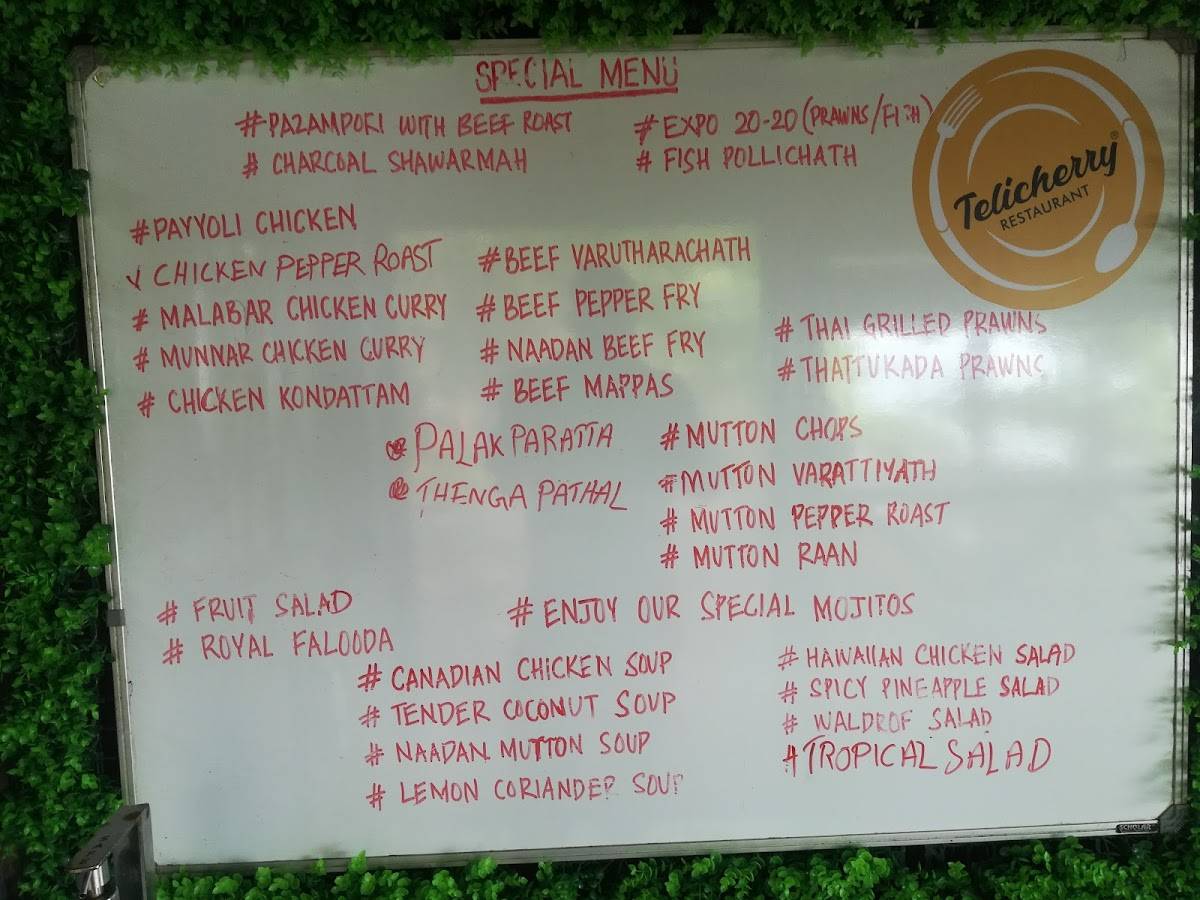 SPECIAL MENU
#PAZAMPORI WITH BEEF ROAST
# CHARCOAL SHAWARMAH
# EXPO 20-20 (PRAWNS/FISH)
# FISH POLLICHATH
Telicherry®
RESTAURANT
#PAYYOLI CHICKEN
CHICKEN PEPPER ROAST
# MALABAR CHICKEN CURRY
# MUNNAR CHICKEN CURRY
# CHICKEN KONDATTAM
#BEEF VARUTHARACHATH
# BEEF PEPPER FRY
# NAADAN BEEF FRY
# BEEF MAPPAS
# THAI GRILLED PRAWNS
# THATTUKADA PRAWNS
PALAK PARATTA
THENGA PATHAL
# MUTTON CHOPS
#MUTTON VARATTIYATH
# MUTTON PEPPER ROAST
# MUTTON RAAN
# FRUIT SALAD
# ROYAL FALOODA
# ENJOY OUR SPECIAL MOJITOS
# CANADIAN CHICKEN SOUP
# TENDER COCONUT SOUP
# NAADAN MUTTON SOUP
# LEMON CORIANDER SOUP
# HAWAIIAN CHICKEN SALAD
# SPICY PINEAPPLE SALAD
# WALDROF SALAD
#TROPICAL SALAD
SCHOLAR